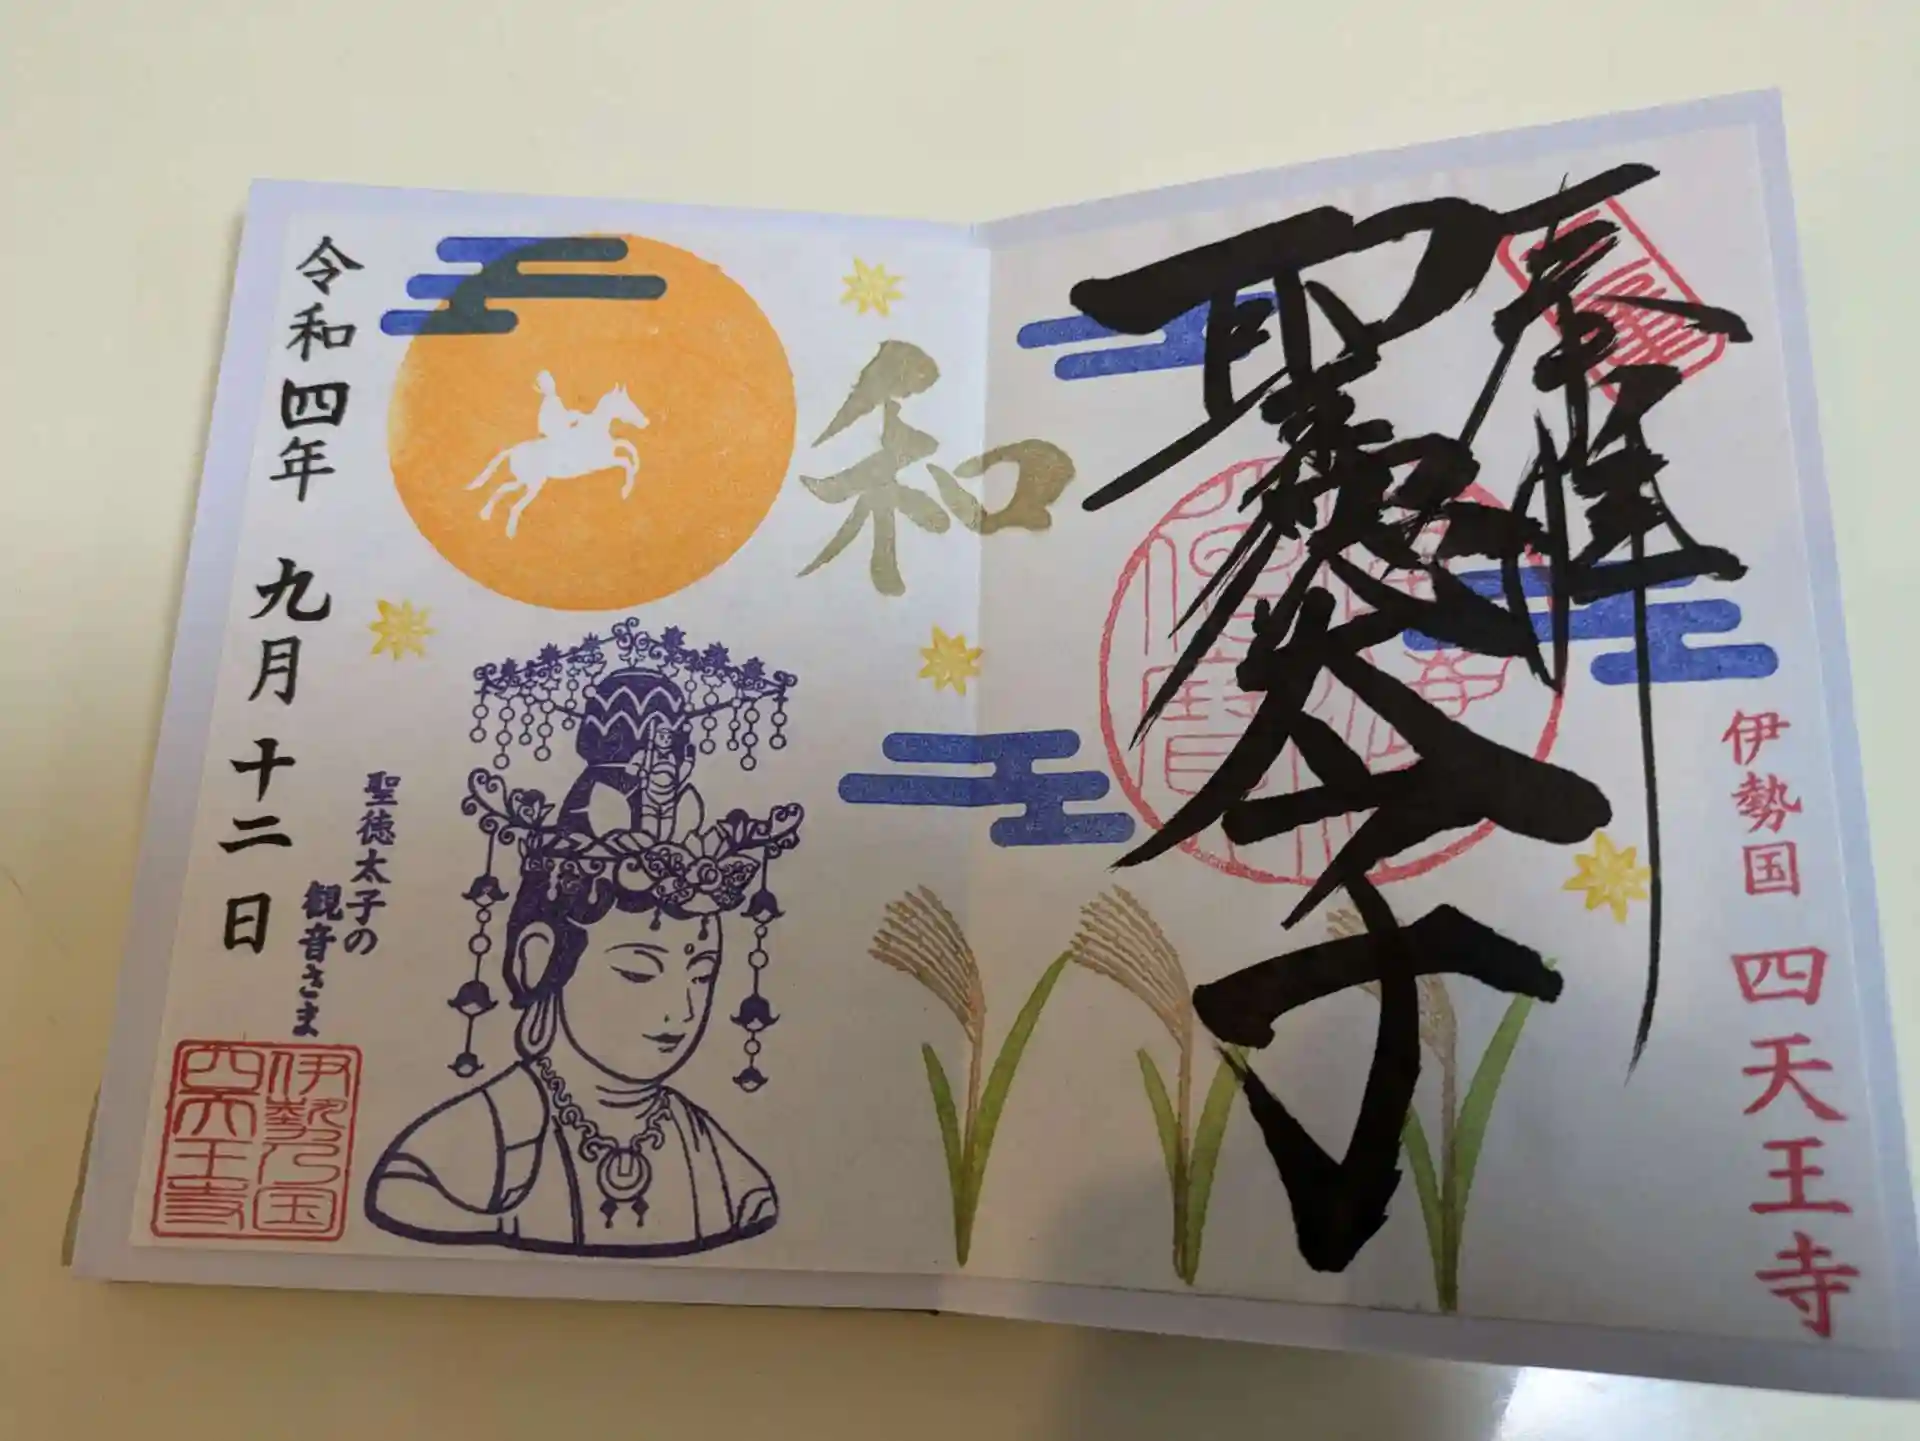 奉拝
聖徳太子
伊勢国 四天王寺
和
令和四年 九月 十二日
聖徳太子の
観音さま
伊勢乃国
四天王寺